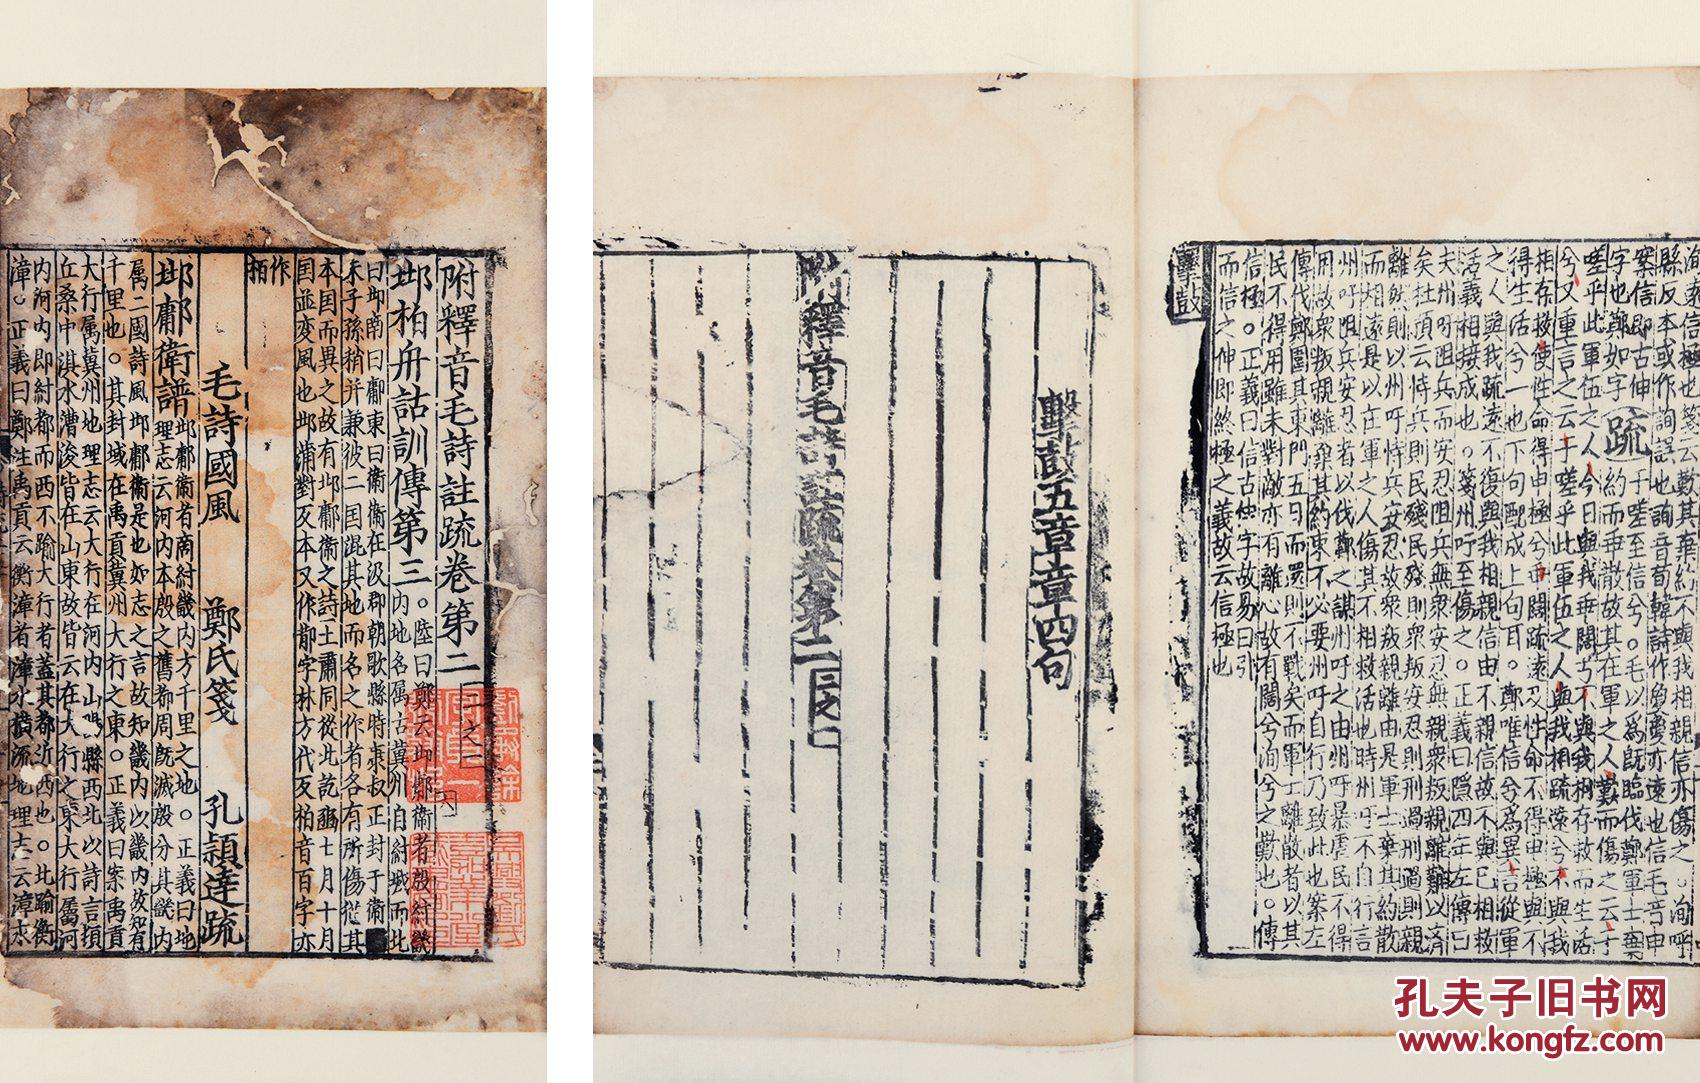 附釋音毛詩註疏卷第二 二之一
邶柏舟詁訓傳第三
內地名屬古冀州自紂城而北
曰邶南曰鄘東曰衛衛在汲郡朝歌縣時康叔正封于衛其
末子孫稍并兼彼二国混其地而名之作者各有所傷從其
本国而異之故有邶鄘衛之詩王肅同從此訖豳七月十月
国並变風也邶蒲對反本又作鄁字林方代反柏音百字亦
作
栢
毛詩國風 鄭氏箋 孔穎達疏
邶鄘衛譜
邶鄘衛者商紂畿內方千里之地。正義曰地
理志云河內本殷之舊都周既滅殷分其畿內
屬二國詩風邶鄘衛是也如志之言故知畿內以畿內故知有
千里也。其封域在禹貢冀州大行之東。正義曰案禹貢
大行屬冀州地理志云大行在河內山陽縣西北以詩言頓
丘桑中淇水漕浚皆在山東故皆云在大行之東大行屬河
內河內即紂都而西不踰大行者蓋其都近西也。北踰衡
漳。正義曰鄭注禹貢云衡漳者漳水橫流地理志云漳水
擊鼓
縣反本或作詢誤也詢音荀韓詩作敻敻亦遠也信毛音申
案信即古伸
字也鄭如字
疏
得生活兮一也下句配成上句耳。鄭唯信兮爲異言從軍
之人與我疏遠不復與我相親信由不親信故不與己相救
活義相接成也。箋州吁至傷之。正義曰隱四年左傳曰
夫州吁阻兵而安忍阻兵無衆安忍無親衆叛親離難以濟
矣杜預云恃兵則民殘民殘則衆叛安忍則刑過刑過則親
離然則以州吁恃兵安忍故衆叛親離由是軍士棄其約散
而相遠是以在軍之人傷其不相救活也時州吁不自行言
州吁阻兵安忍者以伐鄭之謀州吁之由州吁暴虐民不得
用故衆叛親離棄其約束不必要州吁自行乃致此也案左
傳伐鄭圍其東門五日而還則不戰矣而軍士離散者以其
民不得用雖未對敵亦有離心故有闊兮洵兮之歎也。傳
信極。正義曰信古伸字故易曰引
而信之伸即終極之義故云信極也
擊鼓五章章四句
附釋音毛詩註疏卷第二 二之一
孔夫子旧书网
www.kongfz.com